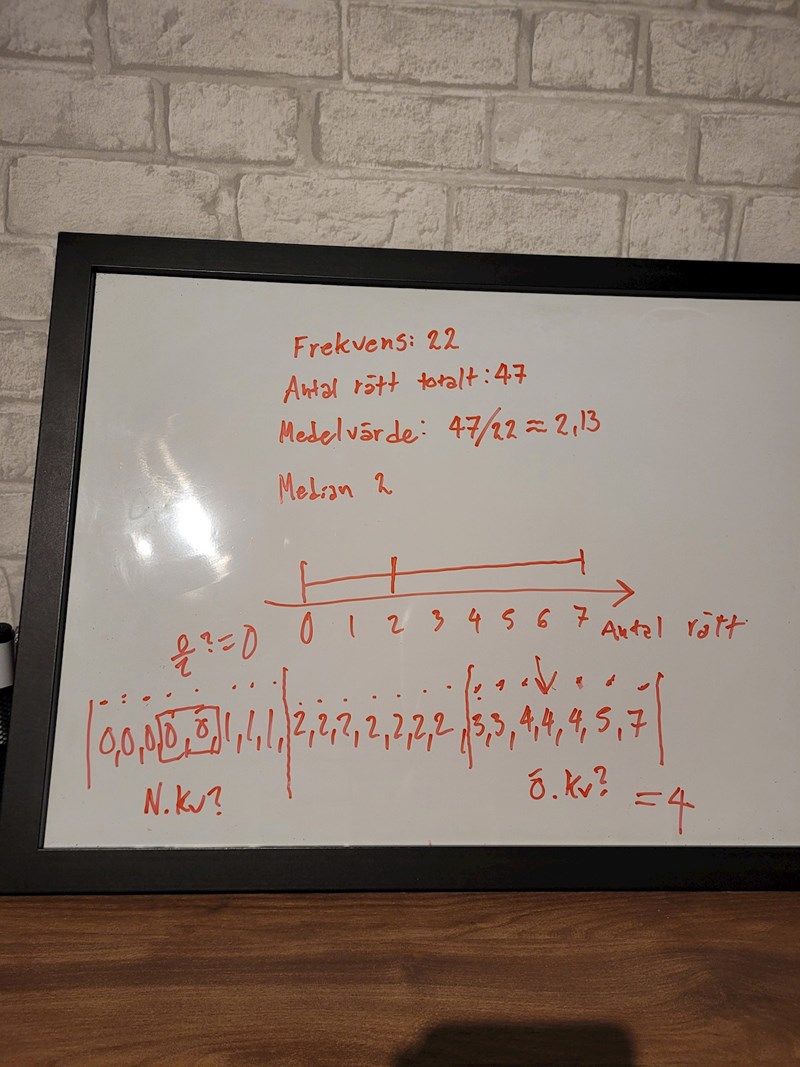 Frekvens: 22
Antal rätt totalt: 47
Medelvärde: 47/22 ≈ 2,13
Median 2
0 1 2 3 4 5 6 7 Antal rätt
0/2 ? = 0
0,0,0,0,0,1,1,1,2,2,2,2,2,2,2,3,3,4,4,4,5,7
N.kv?
Ö.kv? = 4